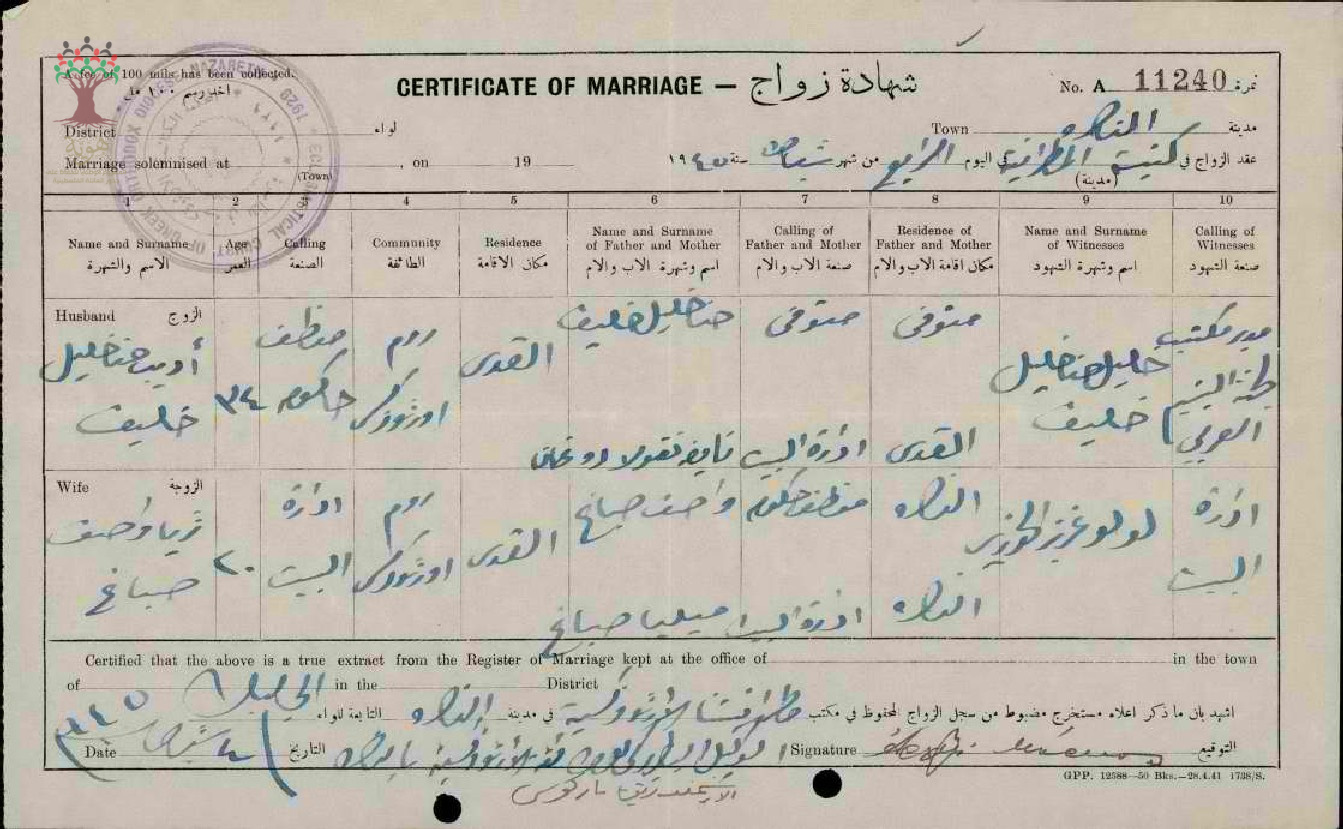 A fee of 100 mils has been collected.
اخذ رسم ١٠٠ مل
CERTIFICATE OF MARRIAGE — شهادة زواج
No. A 11240 نمرة
District لواء
Town الناصره مدينة
Marriage solemnised at , on 19
(Town)
عقد الزواج في كنيسة المطرانية في اليوم الرابع من شهر شباط سنة ١٩٤٥
(مدينة)
ECCLESIASTICAL COURT OF GREEK ORTHODOX DIOCESE NAZARETH 1920
1 2 3 4 5 6 7 8 9 10
Name and Surname Age Calling Community Residence Name and Surname of Father and Mother Calling of Father and Mother Residence of Father and Mother Name and Surname of Witnesses Calling of Witnesses
الاسم والشهرة العمر الصنعة الطائفة مكان الاقامة اسم وشهرة الاب والام صنعة الاب والام مكان اقامة الاب والام اسم وشهرة الشهود صنعة الشهود
Husband الزوج
أديب حنا خليل خليف
٣٤
موظف حكومه
روم اورثوذكس
القدس
حنا خليل خليف
متوفى
متوفى
خليل حنا خليل خليف
مدير مكتب
العربي
نقولا
ادارة البيت
القدس
Wife الزوجة
ثريا واصف صباغ
٢٠
ادارة البيت
روم اورثوذكس
القدس
واصف صباغ
موظف حكومه
الناصره
لولو عزيز
ادارة البيت
ميليا صباغ
ادارة البيت
الناصره
Certified that the above is a true extract from the Register of Marriage kept at the office of in the town
of in the District
اشهد بان ما ذكر اعلاه مستخرج مضبوط من سجل الزواج المحفوظ في مكتب الارثوذكسية في مدينة الناصره التابعة للواء الجليل
Date شباط ٩٤٥ التاريخ
Signature التوقيع
GPP. 12588—50 Bks.—28.4.41 1738/S.